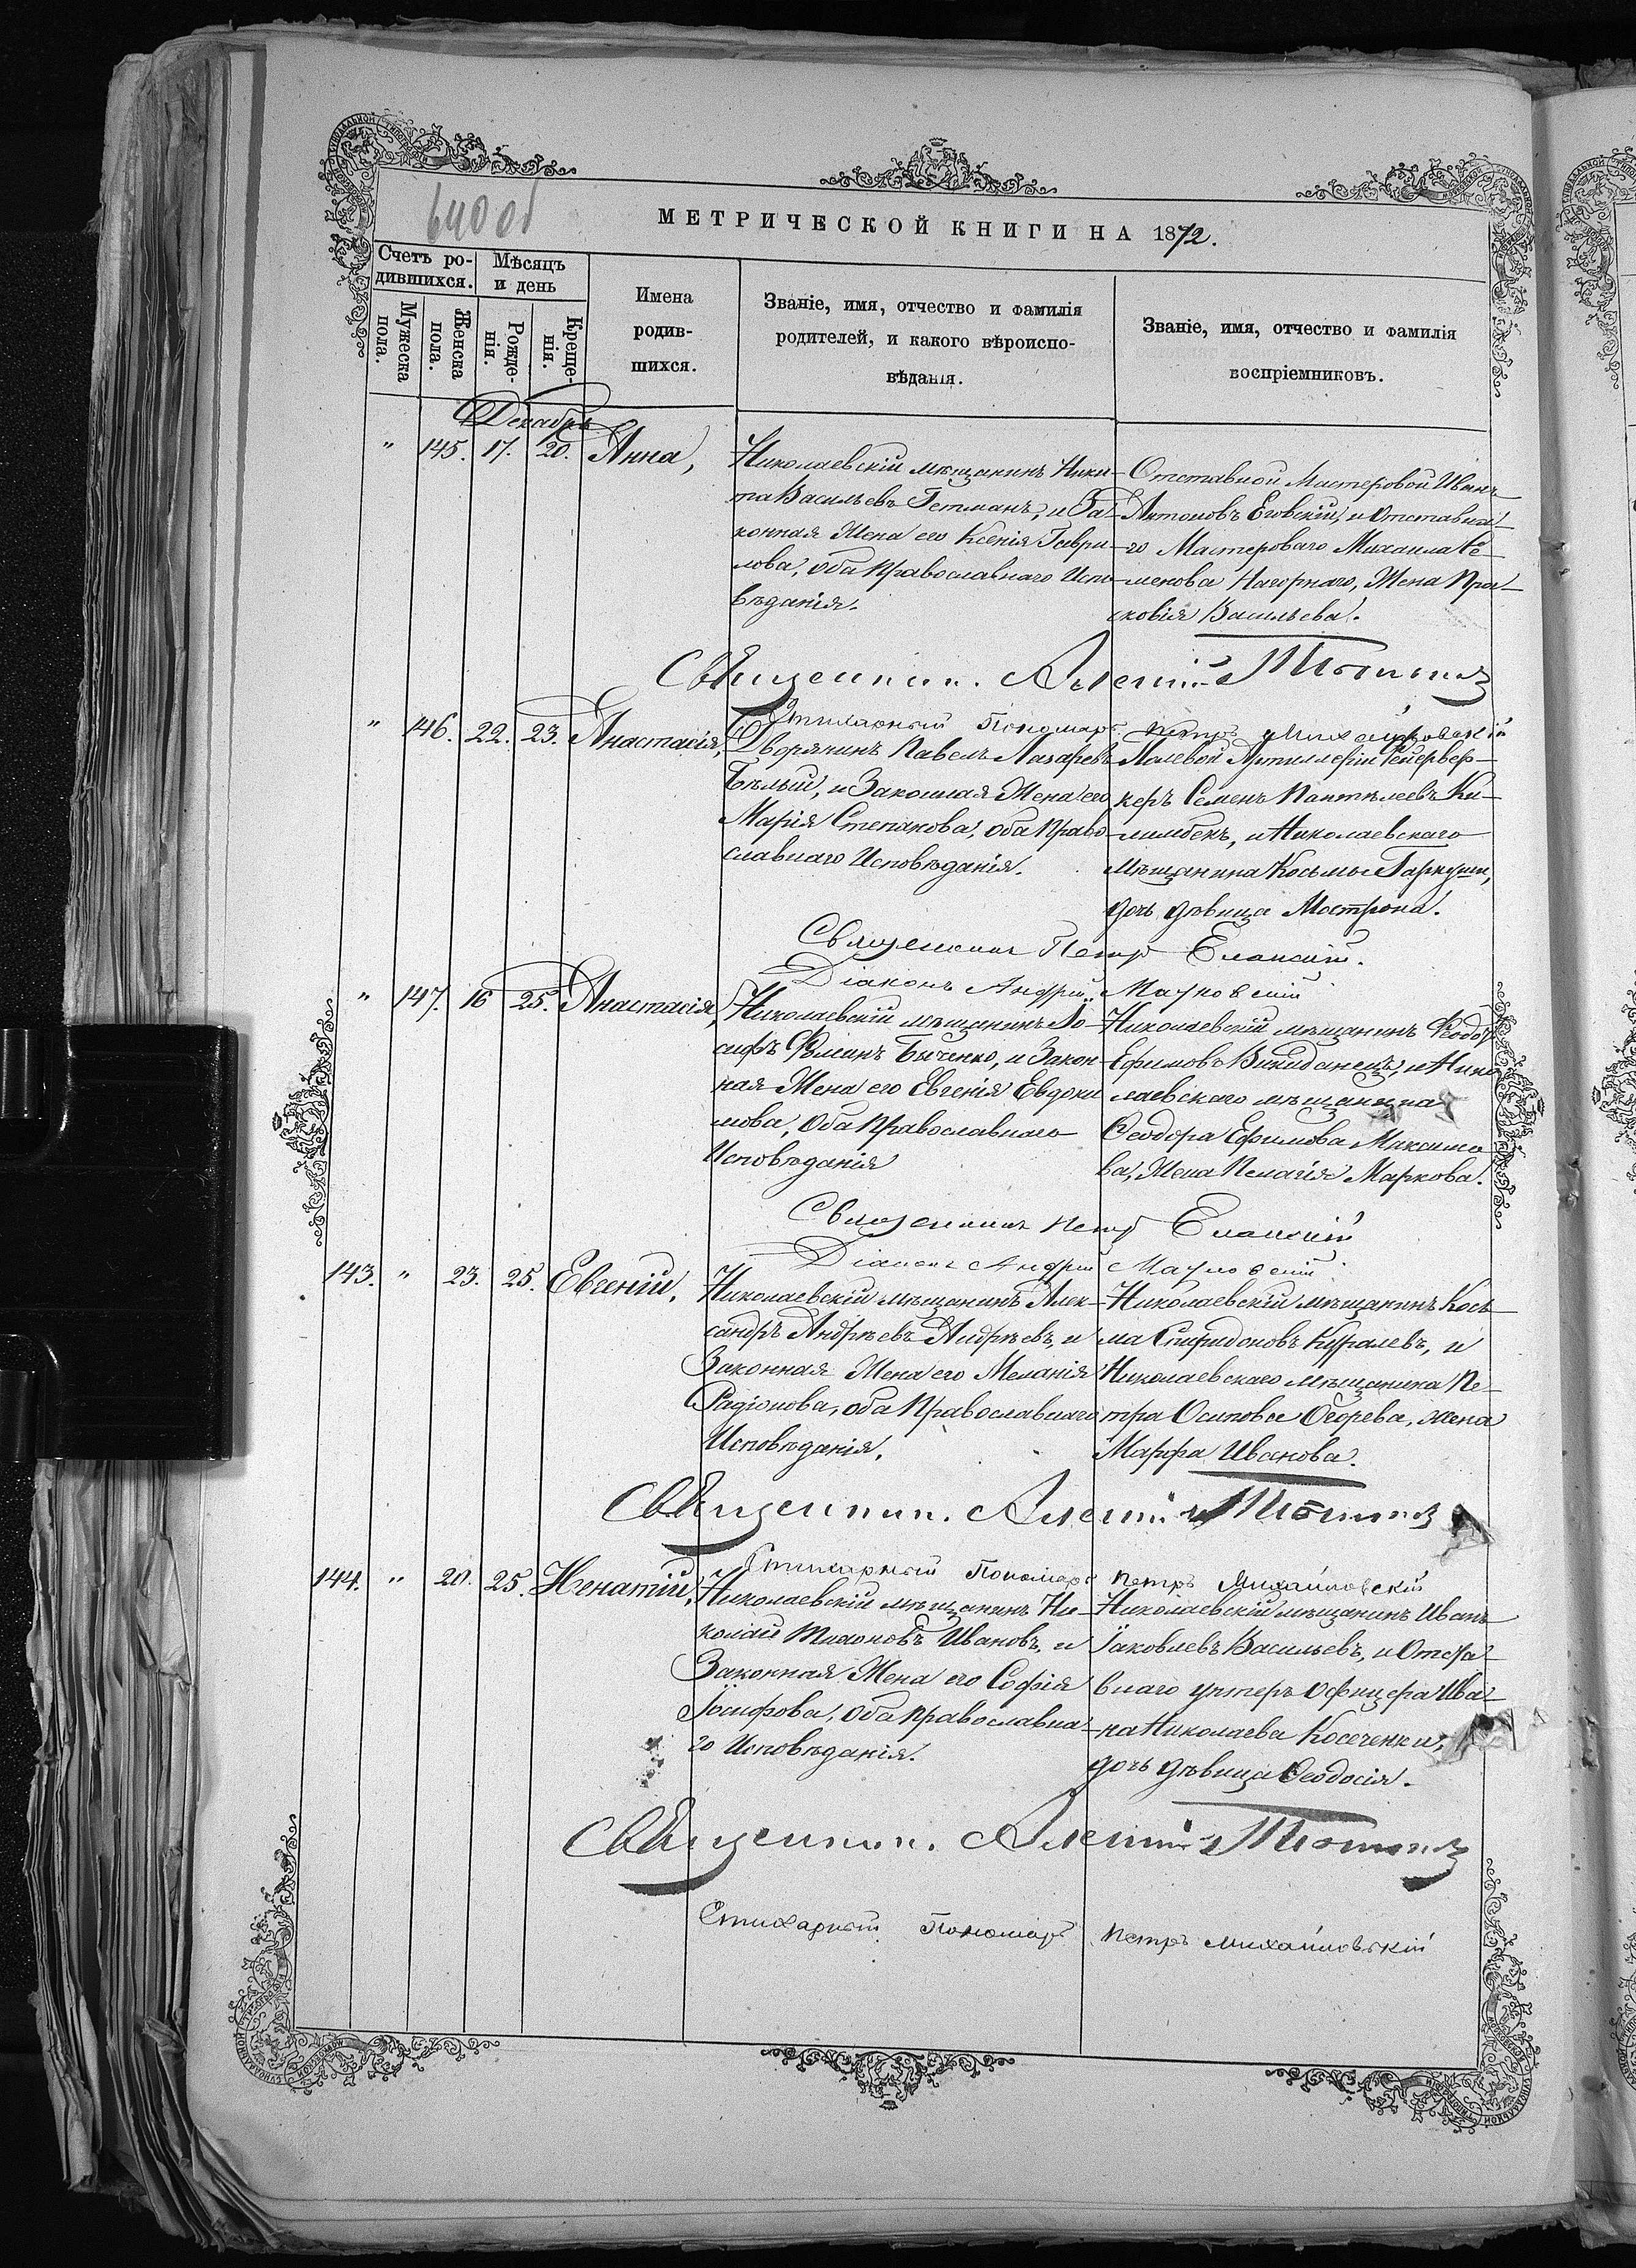 640 об
МЕТРИЧЕСКОЙ КНИГИ НА 1872.
Счетъ ро-
дившихся.
Мѣсяцъ
и день
Мужеска
пола.
Женска
пола.
Рожде-
нія.
Креще-
нія.
Имена
родив-
шихся.
Званіе, имя, отчество и фамилія
родителей, и какого вѣроиспо-
вѣданія.
Званіе, имя, отчество и фамилія
воспріемниковъ.
Декабрь
" 145. 17. 20. Анна,
Николаевскій мѣщанинъ Ники-
та Васильевъ Гетманъ, и За-
конная Жена его Ксенія Гаври-
лова, оба Православнаго Испо-
вѣданія.
Отставной Мастеровой Иванъ
Антоновъ Еговскій, и Отставна-
го Мастероваго Михаила Се-
менова Нагорнаго, Жена Пра-
сковія Васильева.
Священник. Алексій
Стихарный Пономарь Петръ Михайловскій
" 146. 22. 23. Анастасія,
Дворянинъ Павелъ Лазаревъ
Бѣлый, и Законная Жена его
Марія Степанова, оба Право-
славнаго Исповѣданія.
Полевой Артиллеріи Фейервер-
керъ Семенъ Пантѣлеевъ
и Николаевскаго
Мѣщанина Косьмы Гаркуши,
дочь дѣвица Матрона.
Священникъ Петръ Еланскій.
Діаконъ Андрей
" 147. 16 25. Анастасія,
Николаевскій мѣщанинъ Іо-
сифъ Фоминъ Быченко, и Закон-
ная Жена его Евгенія Евдоки
мова, Оба Православнаго
Исповѣданія
Николаевскій мѣщанинъ Ѳеодоръ
Ефимовъ и Нико
лаевскаго мѣщанина
Ѳеодора Ефимова Максимо
ва, Жена Пелагія Маркова.
Священникъ Петръ Еланскій
Діаконъ Андрей
143. " 23. 25. Евгеній,
Николаевскій мѣщанинъ Алек-
сандръ Андрѣевъ Андрѣевъ, и
Законная Жена его Меланія
Радіонова, оба Православнаго
Исповѣданія.
Николаевскій мѣщанинъ Кось-
ма Спиридоновъ и
Николаевскаго мѣщанина Пе-
тра Осипова жена
Марфа Иванова.
Священник. Алексій
Стихарный Пономарь Петръ Михайловскій
144. " 20. 25.
Николаевскій мѣщанинъ Ни-
колай Тихоновъ Ивановъ, и
Законная Жена его Софія
Іосифова, Оба православна-
го Исповѣданія.
Николаевскій мѣщанинъ Иванъ
Іаковлевъ Васильевъ, и Отста-
внаго унтеръ офицера Ива-
на Николаева Косеченки,
дочь дѣвица Ѳеодосія.
Священник. Алексій
Стихарный Пономарь Петръ Михайловскій